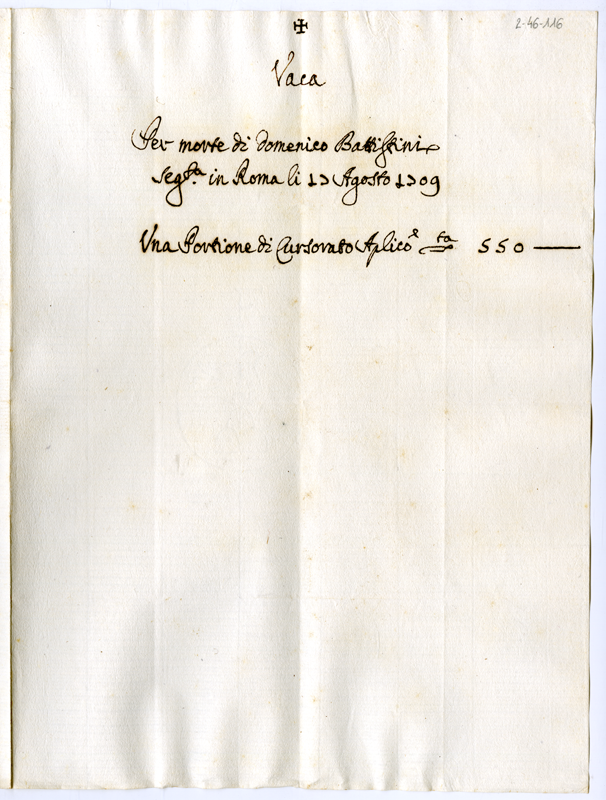 ✠
2-46-116
Vaca
Per morte di Domenico Battistini
seg.ta in Roma li 17 Agosto 1709
Una Portione di Cursorato Aplico 550